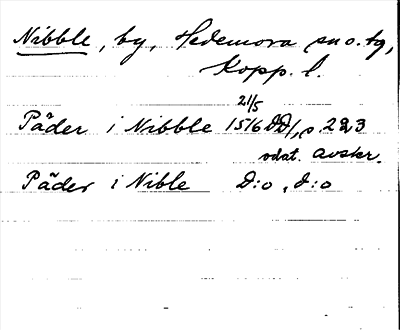 Nibble, by, Hedemora sn o. tg,
Kopp. l.
21/5
Påder i Nibble 1516 DD1, s. 223
odat. avskr.
Påder i Nible D:o, d:o